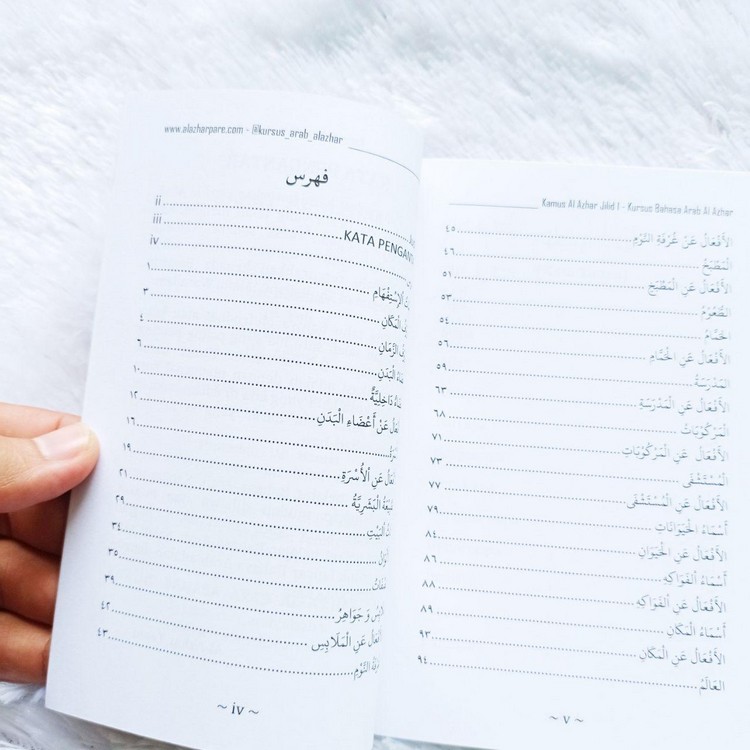 www.alazharpare.com - @kursus_arab_alazhar
فهرس
ii
KATA iii
iv
الإِسْتِفْهَامِ ١
الْمَكَانِ ٣
الزَّمَانِ ٤
الْبَدَنِ ٦
دَاخِلِيَّةٌ ١٠
عَنْ أَعْضَاءِ الْبَدَنِ ١٢
١٦
عَنِ الأُسْرَةِ ١٩
الْبَشَرِيَّةُ ٢١
الْبَيْتِ ٢٩
٣٤
٣٥
وَ جَوَاهِرُ ٣٩
عَنِ الْمَلَابِسِ ٤٢
النَّوْمِ ٤٣
~ iv ~
Kamus Al Azhar Jilid I - Kursus Bahasa Arab Al Azhar
الأَفْعَالُ عَنْ غُرْفَةِ النَّوْمِ ٤٥
الْمَطْبَخُ ٤٦
الأَفْعَالُ عَنِ الْمَطْبَخِ ٥١
الطُّعُوْمُ ٥٣
الحَمَّامُ ٥٤
الأَفْعَالُ عَنِ الْحَمَّامِ ٥٦
المَدْرَسَةُ ٥٩
الأَفْعَالُ عَنِ الْمَدْرَسَةِ ٦٣
الْمَرْكُوْبَاتُ ٦٨
الأَفْعَالُ عَنِ الْمَرْكُوْبَاتِ ٧١
الْمُسْتَشْفَى ٧٣
الأَفْعَالُ عَنِ الْمُسْتَشْفَى ٧٧
أَسْمَاءُ الْحَيَوَانَاتِ ٧٩
الأَفْعَالُ عَنِ الْحَيَوَانِ ٨٤
أَسْمَاءُ الفَوَاكِهِ ٨٦
الأَفْعَالُ عَنِ الفَوَاكِهِ ٨٨
أَسْمَاءُ المَكَانِ ٨٩
الأَفْعَالُ عَنِ الْمَكَانِ ٩٣
العَالَمُ ٩٤
~ v ~